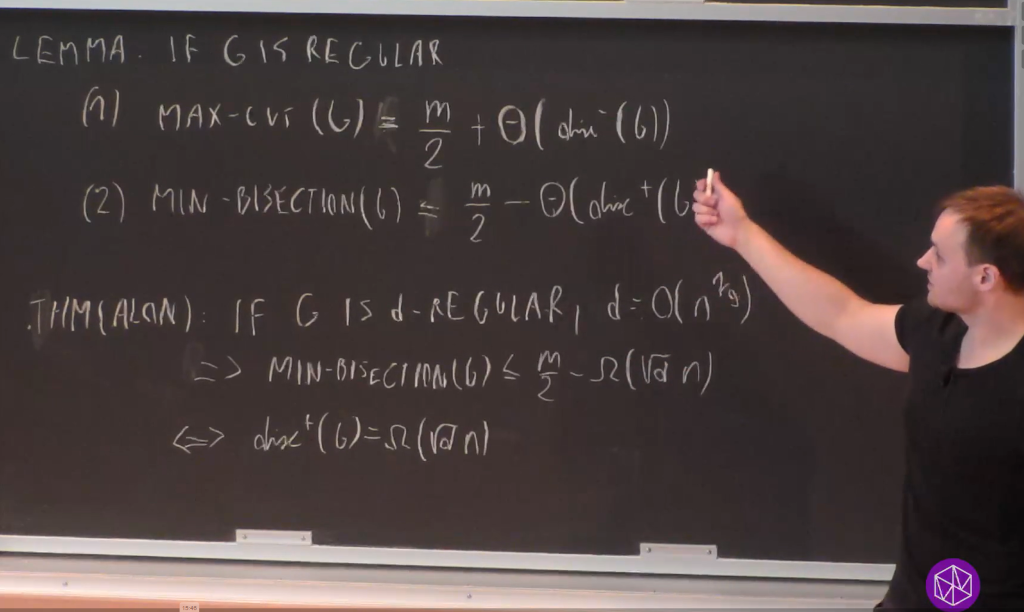 LEMMA. IF G IS REGULAR
(1) MAX-CUT(G) = m/2 + Θ(disc⁻(G))
(2) MIN-BISECTION(G) = m/2 - Θ(disc⁺(G
THM(ALON): IF G IS d-REGULAR, d=O(n^{1/9})
=> MIN-BISECTION(G) ≤ m/2 - Ω(√d n)
<=> disc⁺(G)=Ω(√d n)
15:45